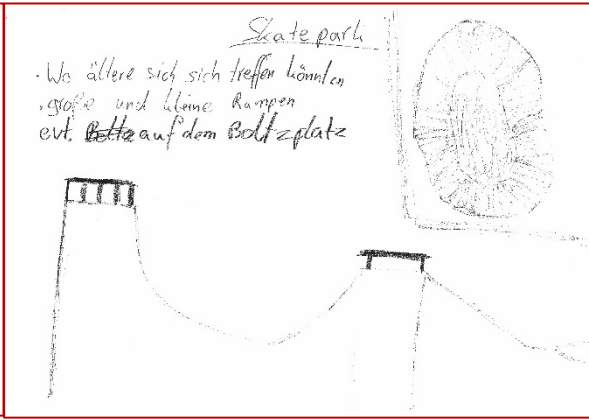 Skatepark
· Wo ältere sich sich treffen könnten
· große und kleine Rampen
evt. Boltz auf dem Boltzplatz